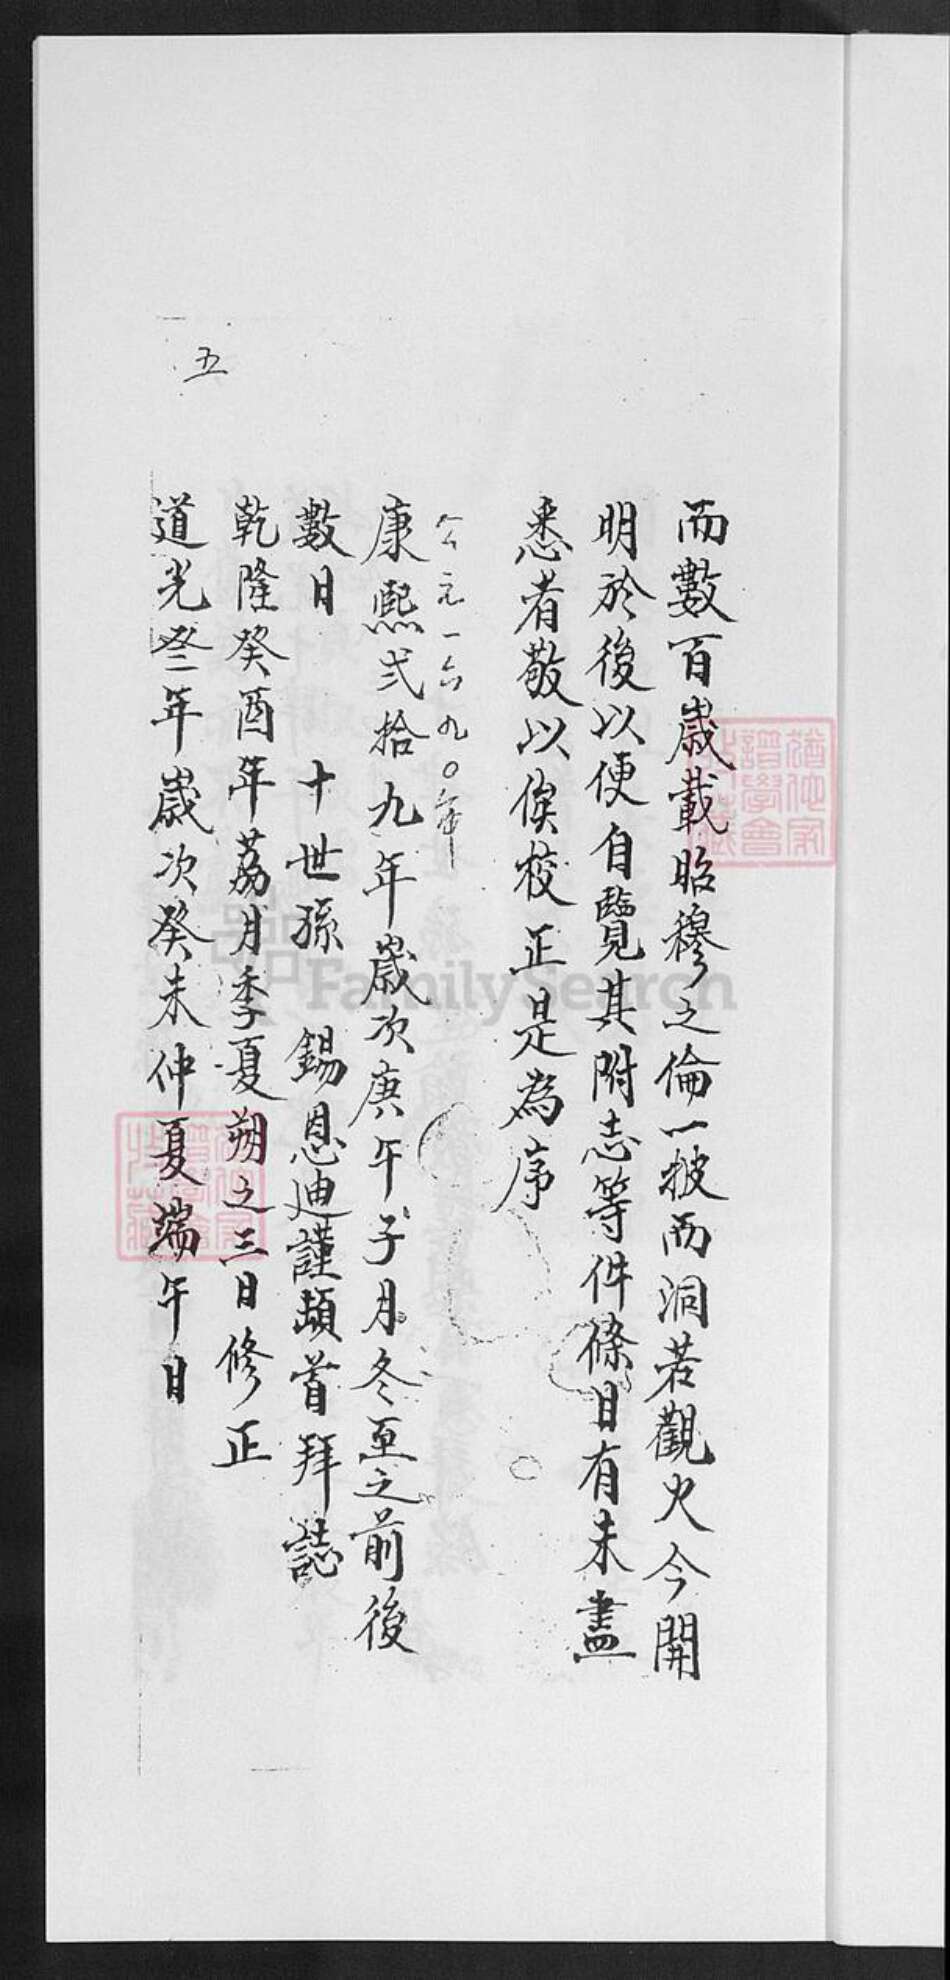 而數百歲載昭穆之倫一披而洞若觀火今開
明於後以便自覽其附志等件條目有未盡
悉者敬以俟校正是為序
公元一六九〇年
康熙弍拾九年歲次庚午子月冬至之前後
數日 十世孫 錫恩迪謹頓首拜誌
乾隆癸酉年荔月季夏朔之三日修正
道光叁年歲次癸未仲夏端午日
五
FamilySearch